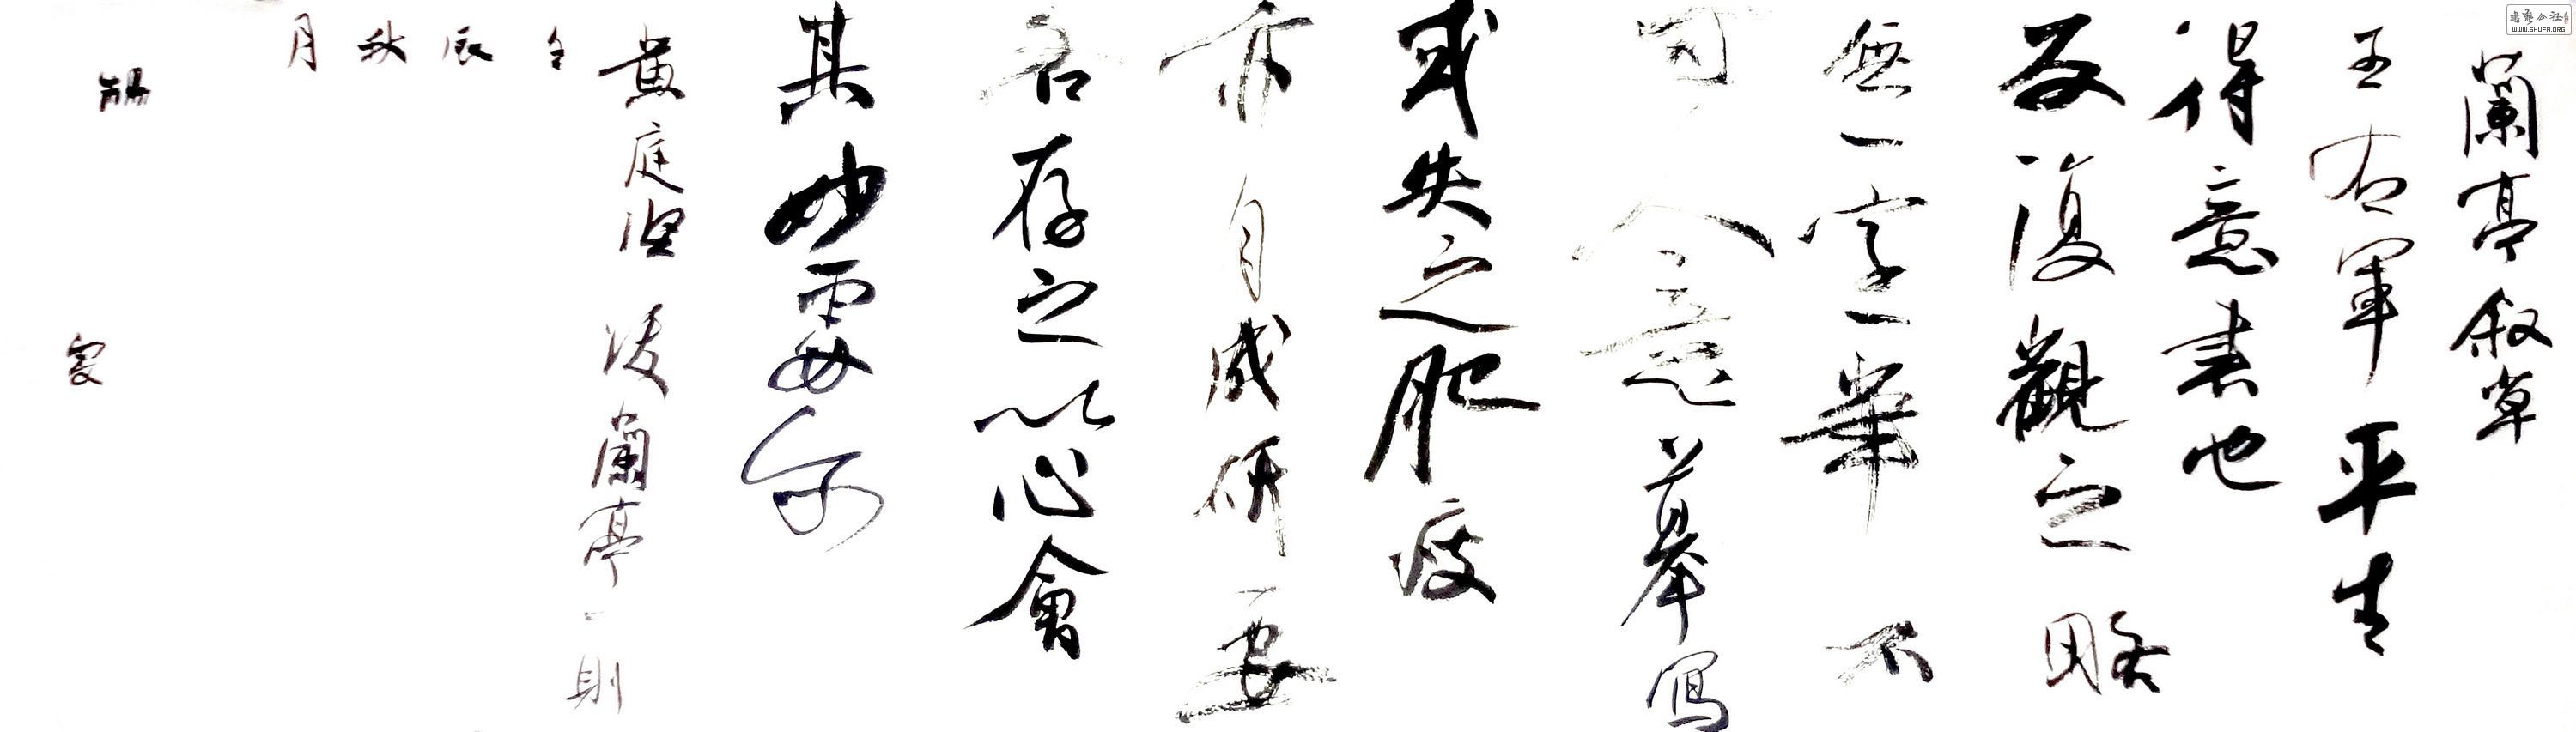 蘭亭叙草
王右軍平生
得意書也
反復觀之略
無一字一筆不
可人意摹寫
或失之肥瘦
亦自成研要
各存之以心會
其妙處爾
黄庭坚 跋蘭亭一則
壬
辰
秋
月
WWW.SHUFA.ORG